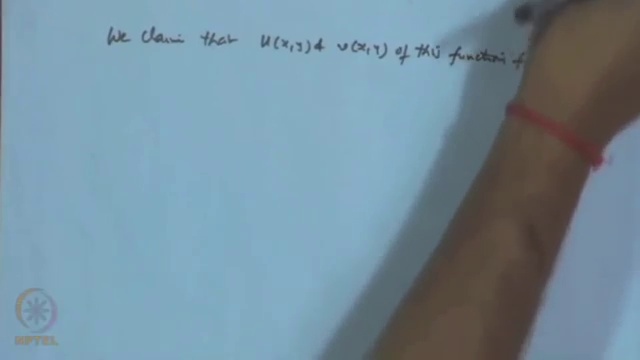 We claim that u(x,y) & v(x,y) of this function f
NPTEL